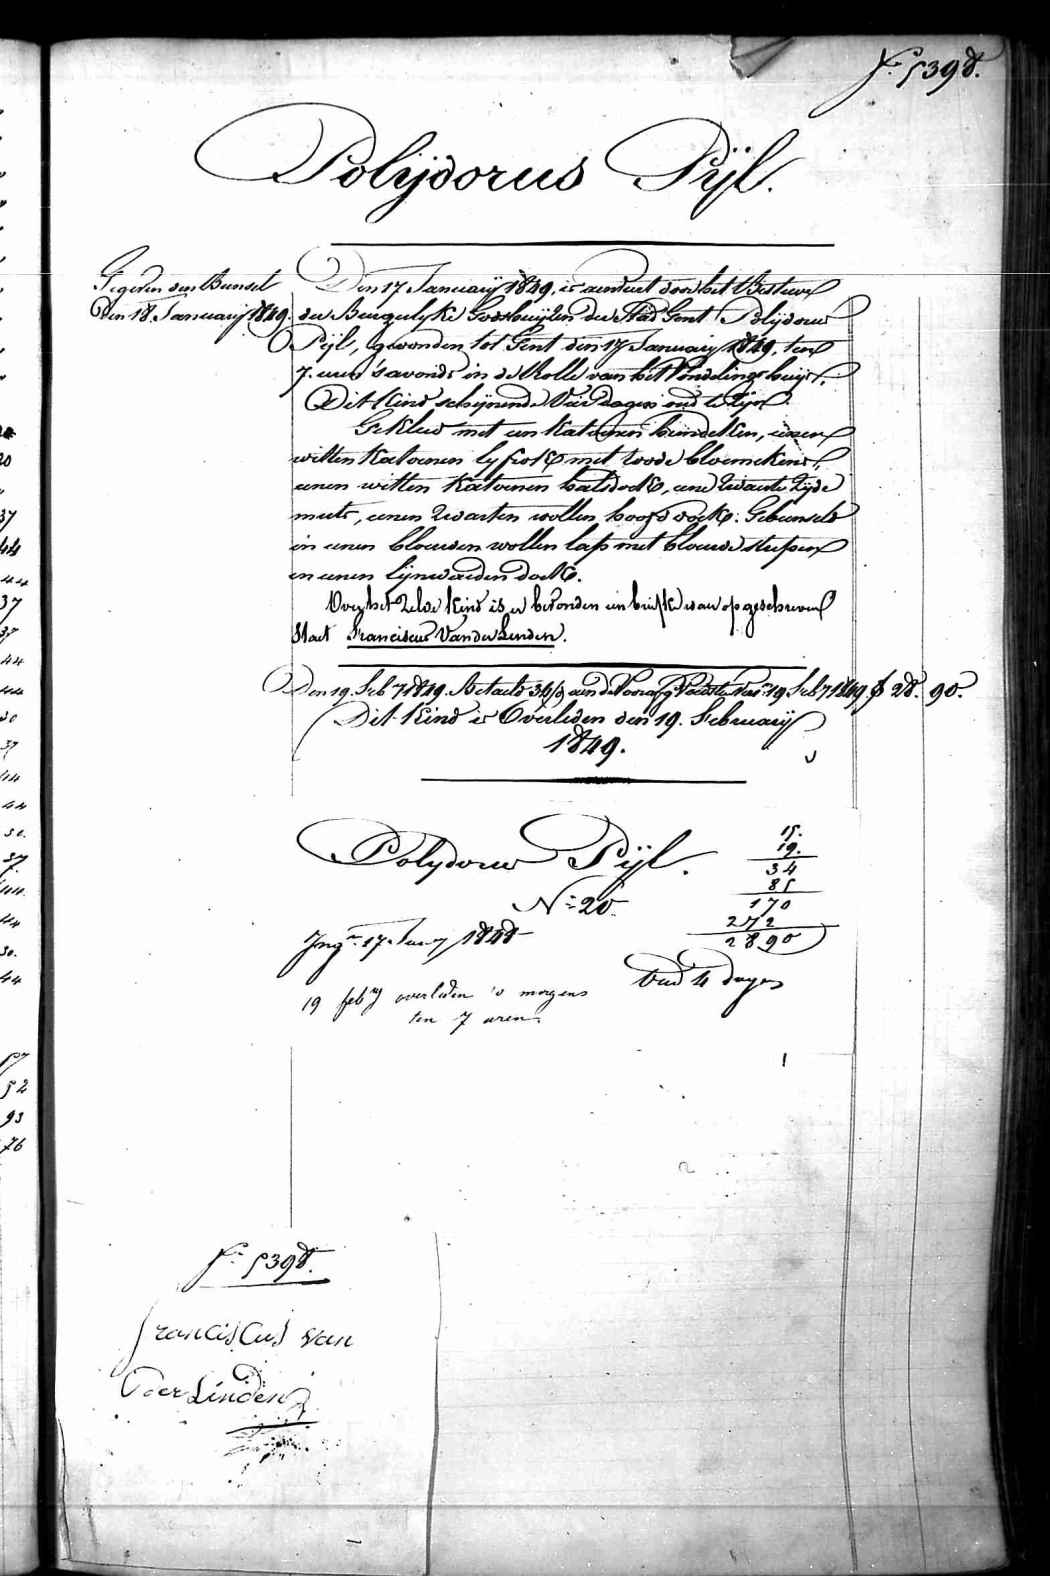 f.° 5398.
Polijdorus Pijl.
Gegeven den Bunsel
Den 18. Januarij 1849.
Den 17 Januarij 1849, is aenveert door het Bestuur
der Burgelyke Godshuijzen der Stad Gent Polijdorus
Pijl, gevonden tot Gent den 17 Januarij 1849, ten
7. uren 's avonds in de Rolle van het Vondelingshuijs.
Dit Kind schijnende Vier dagen oud te zijn
Gekleed met een katoenen hemdeken, eenen
witten katoenen lyfrok met roode bloemekens,
eenen witten katoenen halsdoek, eene zwarte zyde
muts, eenen zwarten wollen hoofddoek. Gebunseld
in eenen blauwen wollen lap met blauwe streepen
en eenen lijnwaeden doek.
Over het zelve kind is er bevonden een briefke waer op geschreven
Staet Franciscus Van der Linden.
Den 19 Feb 7 1849. Betaelt 34/9 aen de 19 Feb 7 1849 f 28. 90.
Dit Kind is Overleden den 19. Februarij
1849.
Polydorus Pijl.
N° 20.
Ing.n 17. Jany 1848
15.
19.
34
85
170
272
2890
Oud 4 dagen
19 feb.ry overleden 's morgens
ten 7 uren
f.° 5398.
franciscus van
Der Linden